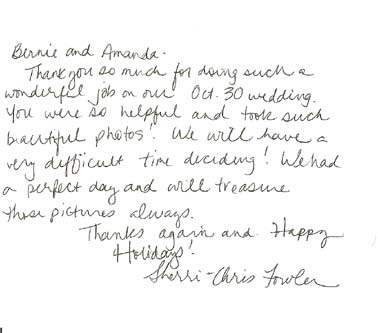 Bernie and Amanda.
Thank you so much for doing such a
wonderful job on our Oct. 30 wedding.
You were so helpful and took such
beautiful photos! We will have a
very difficult time deciding! We had
a perfect day and will treasure
those pictures always.
Thanks again and Happy
Holidays!
Sherri-Chris Fowler